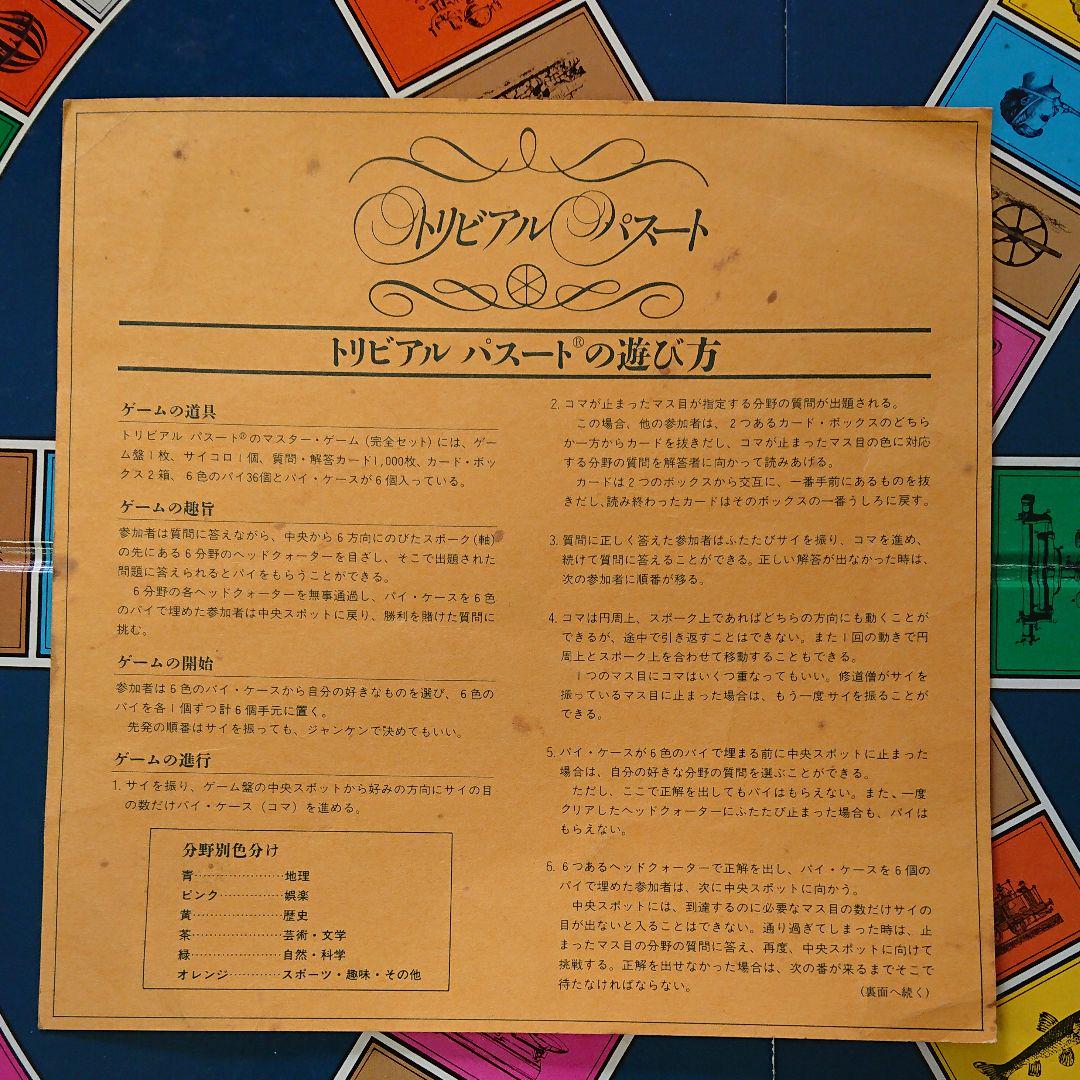 トリビアル パスート
トリビアル パスート®の遊び方
ゲームの道具
トリビアル パスート®のマスター・ゲーム（完全セット）には、ゲー
ム盤1枚、サイコロ1個、質問・解答カード1,000枚、カード・ボッ
クス2箱、6色のパイ36個とパイ・ケースが6個入っている。
ゲームの趣旨
参加者は質問に答えながら、中央から6方向にのびたスポーク(軸)
の先にある6分野のヘッドクォーターを目ざし、そこで出題された
問題に答えられるとパイをもらうことができる。
6分野の各ヘッドクォーターを無事通過し、パイ・ケースを6色
のパイで埋めた参加者は中央スポットに戻り、勝利を賭けた質問に
挑む。
ゲームの開始
参加者は6色のパイ・ケースから自分の好きなものを選び、6色の
パイを各1個ずつ計6個手元に置く。
先発の順番はサイを振っても、ジャンケンで決めてもいい。
ゲームの進行
1. サイを振り、ゲーム盤の中央スポットから好みの方向にサイの目
の数だけパイ・ケース（コマ）を進める。
分野別色分け
青…………………地理
ピンク……………娯楽
黄…………………歴史
茶…………………芸術・文学
緑…………………自然・科学
オレンジ…………スポーツ・趣味・その他
2. コマが止まったマス目が指定する分野の質問が出題される。
この場合、他の参加者は、2つあるカード・ボックスのどちら
か一方からカードを抜きだし、コマが止まったマス目の色に対応
する分野の質問を解答者に向かって読みあげる。
カードは2つのボックスから交互に、一番手前にあるものを抜
きだし、読み終わったカードはそのボックスの一番うしろに戻す。
3. 質問に正しく答えた参加者はふたたびサイを振り、コマを進め、
続けて質問に答えることができる。正しい解答が出なかった時は、
次の参加者に順番が移る。
4. コマは円周上、スポーク上であればどちらの方向にも動くことが
できるが、途中で引き返すことはできない。また1回の動きで円
周上とスポーク上を合わせて移動することもできる。
1つのマス目にコマはいくつ重なってもいい。修道僧がサイを
振っているマス目に止まった場合は、もう一度サイを振ることが
できる。
5. パイ・ケースが6色のパイで埋まる前に中央スポットに止まった
場合は、自分の好きな分野の質問を選ぶことができる。
ただし、ここで正解を出してもパイはもらえない。また、一度
クリアしたヘッドクォーターにふたたび止まった場合も、パイは
もらえない。
6. 6つあるヘッドクォーターで正解を出し、パイ・ケースを6個の
パイで埋めた参加者は、次に中央スポットに向かう。
中央スポットには、到達するのに必要なマス目の数だけサイの
目が出ないと入ることはできない。通り過ぎてしまった時は、止
まったマス目の分野の質問に答え、再度、中央スポットに向けて
挑戦する。正解を出せなかった場合は、次の番が来るまでそこで
待たなければならない。
(裏面へ続く)